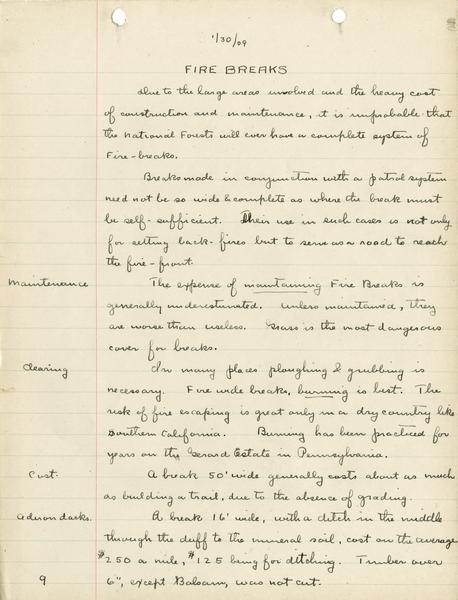 1/30/09
FIRE BREAKS
Due to the large areas involved and the heavy cost
of construction and maintenance, it is improbable that
the National Forests will ever have a complete system of
Fire-breaks.
Breaks made in conjunction with a patrol system
need not be so wide & complete as where the break must
be self-sufficient. Their use in such cases is not only
for setting back-fires but to serve as a road to reach
the fire-front.
Maintenance The expense of maintaining Fire Breaks is
generally underestimated. Unless maintained, they
are worse than useless. Grass is the most dangerous
cover for breaks.
Clearing In many places ploughing & grubbing is
necessary. For wide breaks, burning is best. The
risk of fire escaping is great only in a dry country like
Southern California. Burning has been practiced for
years on the Gerard Estate in Pennsylvania.
Cost. A break 50' wide generally costs about as much
as building a trail, due to the absence of grading.
Adirondacks. A break 16' wide, with a ditch in the middle
through the duff to the mineral soil, cost on the average
$250 a mile, $125 being for ditching. Timber over
9 6", except Balsam, was not cut.